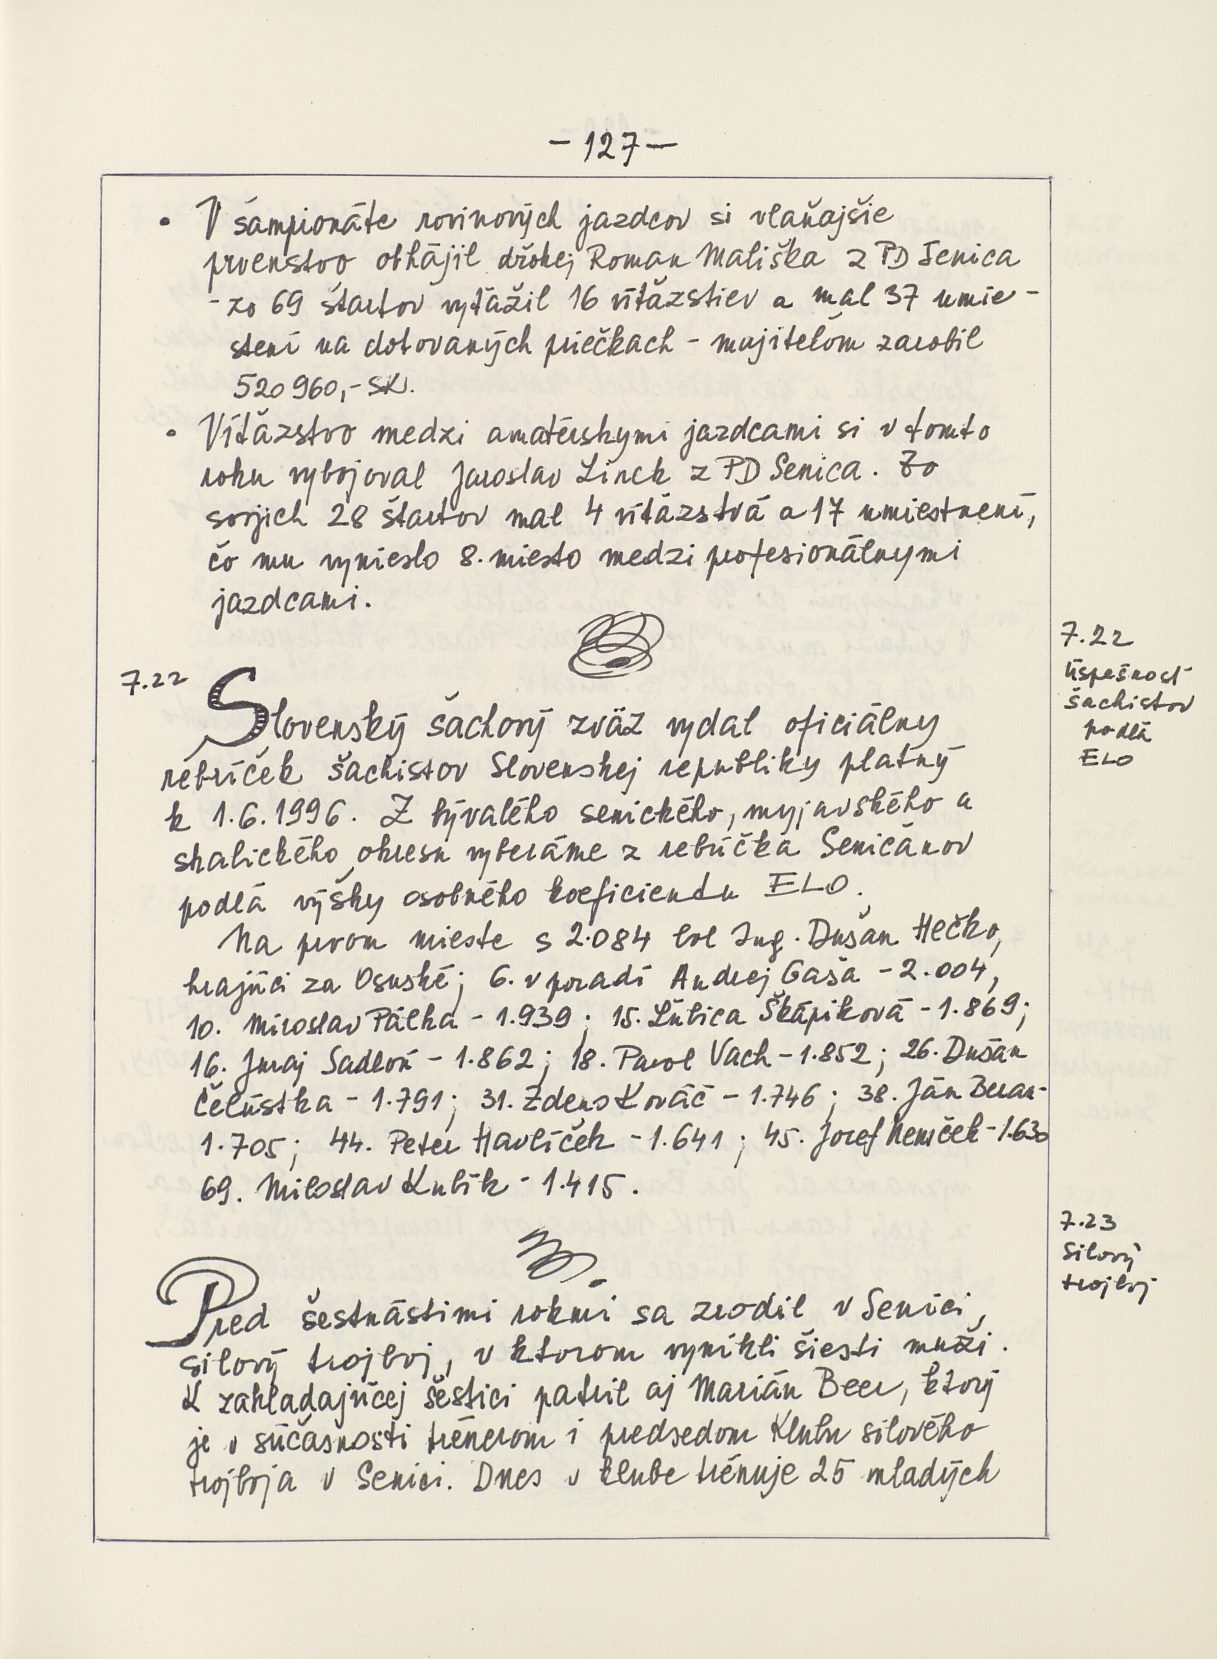 – 127 –
• V šampionáte rovinových jazdcov si vlaňajšie
prvenstvo obhájil džokej Roman Mališka z PD Senica
- zo 69 štartov vyťažil 16 víťazstiev a mal 37 umie-
stení na dotovaných priečkach - majiteľom zarobil
520 960,- SK.
• Víťazstvo medzi amatérskymi jazdcami si v tomto
roku vybojoval Jaroslav Línek z PD Senica. Zo
svojich 28 štartov mal 4 víťazstvá a 17 umiestnení,
čo mu vynieslo 8. miesto medzi profesionálnymi
jazdcami.
7.22
Úspešnosť
šachistov
podľa
ELO
7.22 Slovenský šachový zväz vydal oficiálny
rebríček šachistov Slovenskej republiky platný
k 1.6.1996. Z bývalého senického, myjavského a
skalického okresu vyberáme z rebríčka Seničanov
podľa výšky osobného koeficientu ELO.
Na prvom mieste s 2.084 bol Ing. Dušan Hečko,
hrajúci za Osuské; 6. v poradí Andrej Gaša - 2.004,
10. Miroslav Pálka - 1.939; 15. Ľubica Škápiková - 1.869;
16. Juraj Sadloň - 1.862; 18. Pavol Vach - 1.852; 26. Dušan
Čelústka - 1.791; 31. Zdeno Kováč - 1.746; 38. Ján Beran-
1.705; 44. Peter Havlíček - 1.641; 45. Jozef Nemček - 1.630
69. Miloslav Kubík - 1.415.
7.23
Silový
trojboj
Pred šestnástimi rokmi sa zrodil v Senici,
silový trojboj, v ktorom vynikli šiesti muži.
K zakladajúcej šestici patril aj Marián Beer, ktorý
je v súčasnosti trénerom i predsedom Klubu silového
trojboja v Senici. Dnes v klube trénuje 25 mladých